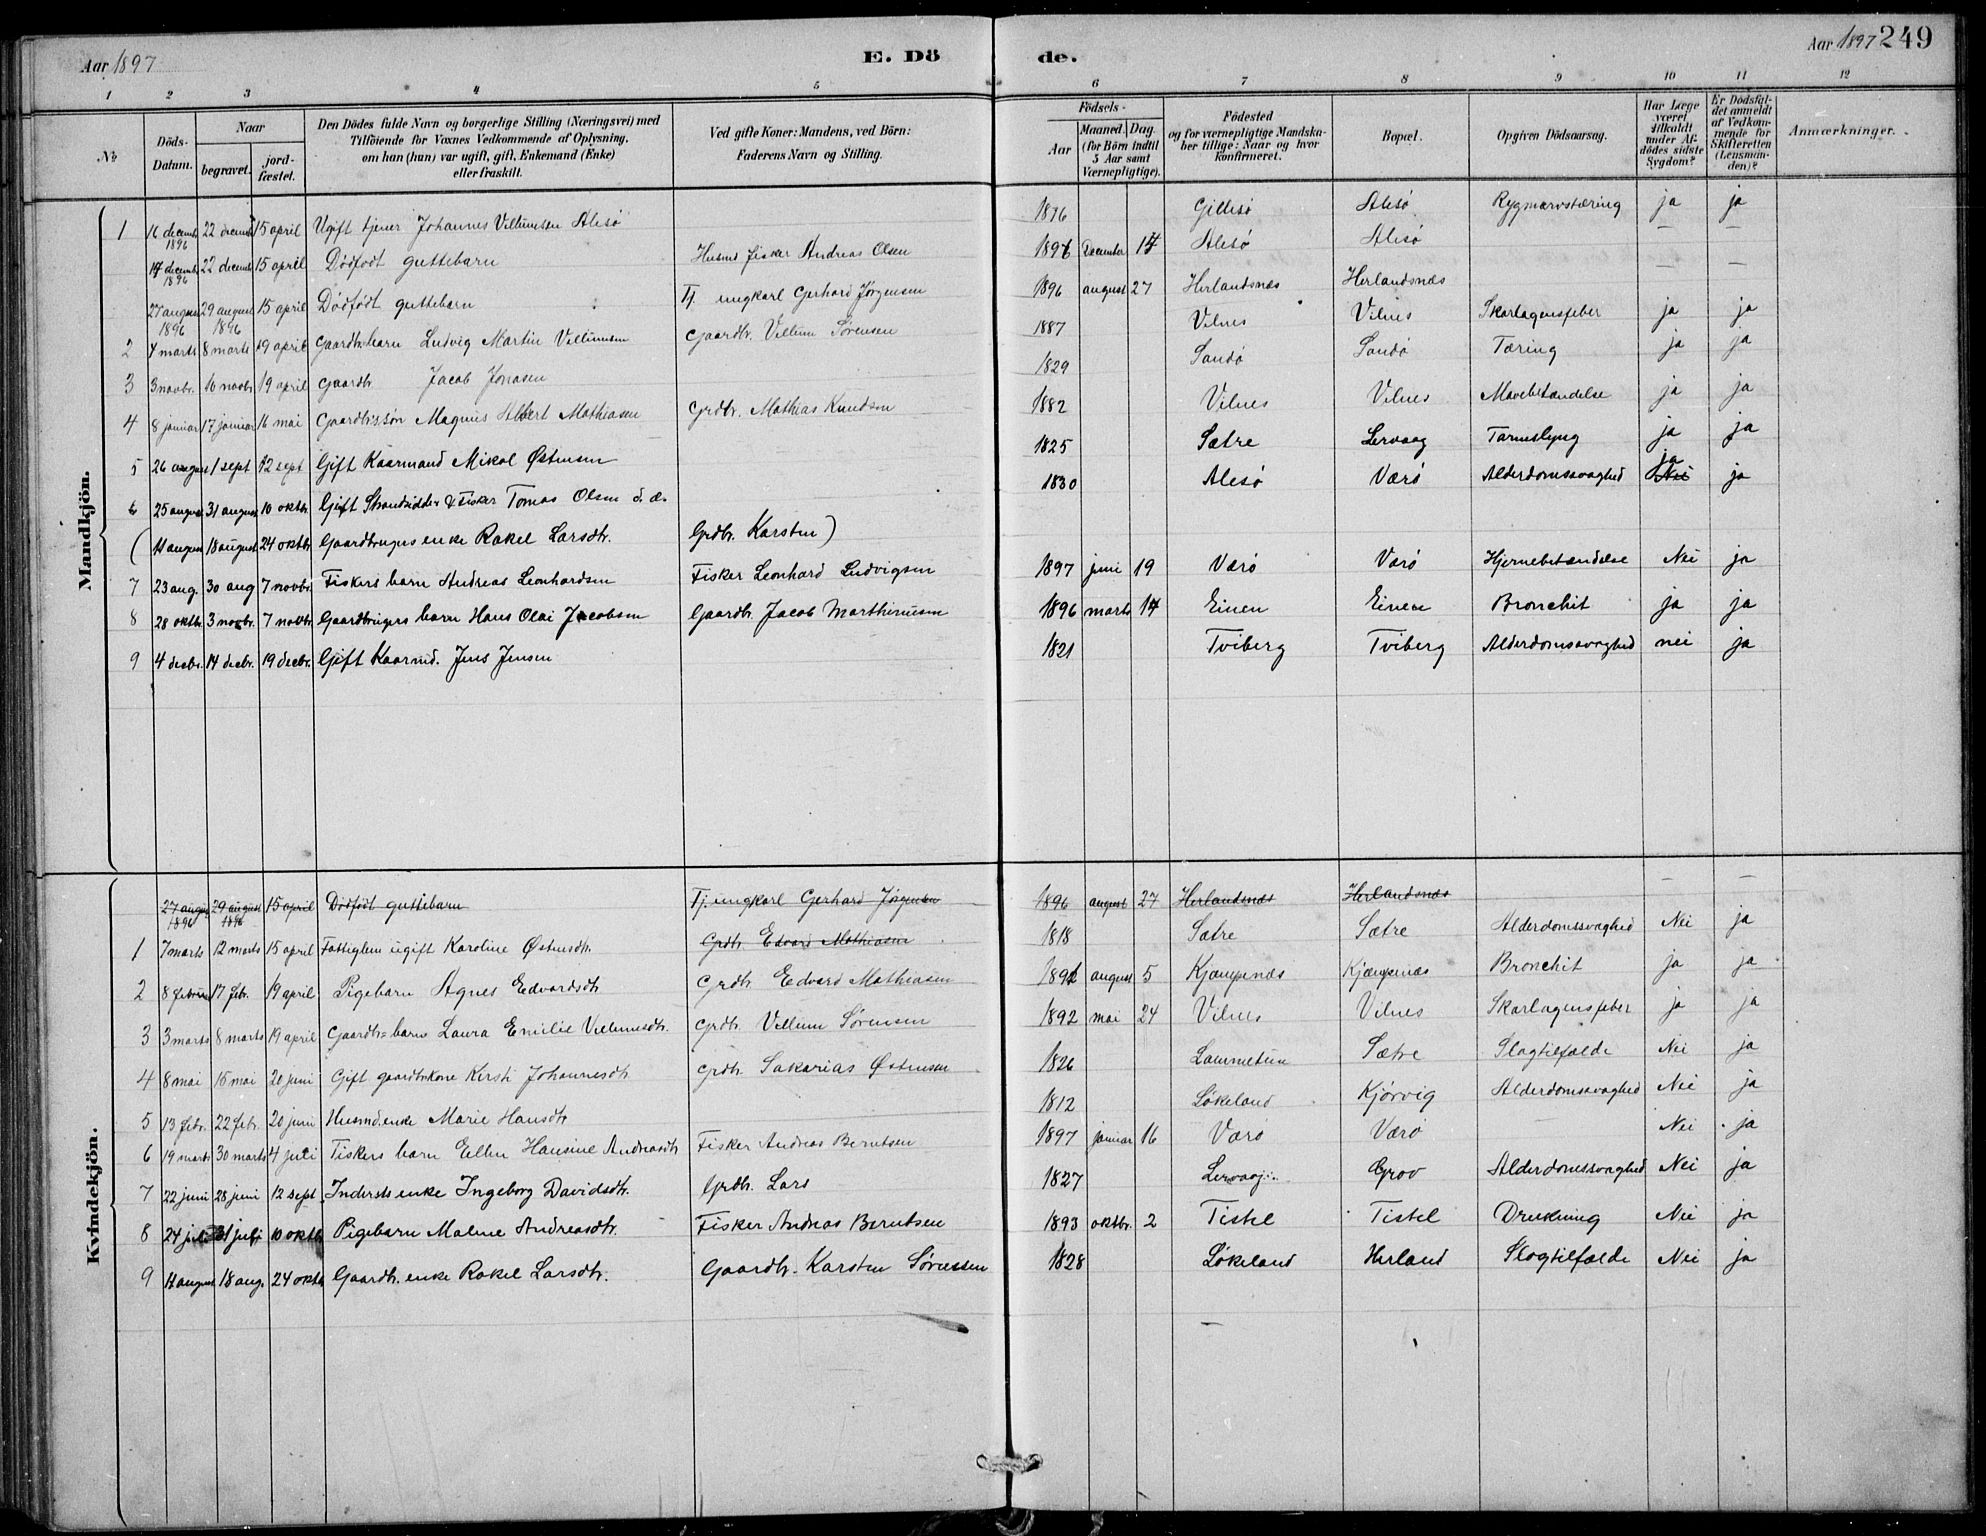 Aar 1897
E. Dö de.
Aar 1897 249
1 2 3 4 5 6 7 8 9 10 11 12
№ Döds-Datum. Naar begravet. jordfæstet. Den Dödes fulde Navn og borgerlige Stilling (Næringsvei) med Tilföiende for Voxnes Vedkommende af Oplysning, om han (hun) var ugift, gift, Enkemand (Enke) eller fraskilt. Ved gifte Koner: Mandens, ved Börn: Faderens Navn og Stilling. Födsels- Aar Maaned. Dag. (for Börn indtil 5 Aar samt Værnepligtige). Födested og for værnepligtige Mandskaber tillige: Naar og hvor konfirmeret. Bopæl. Opgiven Dödsaarsag. Har Læge været tilkaldt under Afdödes sidste Sygdom? Er Dödsfaldet anmeldt af Vedkommende for Skifteretten (Lensmanden)? Anmærkninger.
Mandkjön.
1 16 decemb. 1896 22 decemb. 15 april Ugift tjener Johannes Villumsen Alesö 1876 Gillesö Alesö Rygmarvstæring ja ja
14 decemb. 1896 22 decemb. 15 april Dödfödt guttebarn Husmd fisker Andreas Olsen 1896 December 14 Alesö Alesö — —
27 august 1896 29 august 1896 15 april Dödfödt guttebarn Tj. ungkarl Gerhard Jörgensen 1896 august 27 Herlandsnæs Herlandsnæs — —
2 4 marts 8 marts 19 april Gaardbr.barn Ludvig Martin Villumsen Gaardbr. Villum Sørensen 1887 Vilnes Vilnes Skarlagensfeber ja ja
3 3 novbr. 10 novbr. 19 april Gaardbr Jacob Jonasen 1829 Sandö Sandö Tæring ja ja
4 8 januar 17 januar 16 mai Gaardbr.søn Magnus Albert Mathiasen Grdbr. Mathias Knudsen 1882 Vilnes Vilnes Mavebetændelse ja ja
5 26 august 1 sept 12 sept Gift Kaarmand Mikal Østensen 1825 Sætre Lervaag Tarmslyng ja ja
6 25 august 31 august 10 oktbr. Gift Strandsidder & Fisker Tomas Olsen d. æ. 1830 Alesö Værö Alderdomssvaghed Nei ja ja
( 11 august 18 august 24 oktbr. Gaardbrugers enke Rakel Larsdtr. Grdbr. Karsten)
7 23 aug. 30 aug 7 novbr. Fiskers barn Andreas Leonhardsen Fisker Leonhard Ludvigsen 1897 juni 19 Værö Værö Hjernebetændelse Nei ja
8 28 oktbr. 3 novbr. 7 novbr. Gaardbrugers barn Hans Olai Jacobsen Gaardbr. Jacob Marthinusen 1896 marts 14 Einen Einen Bronchit ja ja
9 4 decbr. 14 decbr. 19 decbr. Gift Kaarmd. Jens Jensen 1821 Tviberg Tviberg Alderdomssvaghed nei ja
Kvindekjön.
27 august 1896 29 august 1896 15 april Dödfödt guttebarn Tj. ungkarl Gerhard Jörgensen 1896 august 27 Herlandsnæs Herlandsnæs — —
1 7 marts 12 marts 15 april Fattiglem ugift Karoline Østensdtr. Grdbr. Edvard Mathiasen 1818 Sætre Sætre Alderdomssvaghed Nei ja
2 8 februar 17 febr. 19 april Pigebarn Agnes Edvardsdtr Grdbr. Edvard Mathiasen 1891 august 5 Kjempenæs Kjempenæs Bronchit ja ja
3 3 marts 8 marts 19 april Gaardbr=barn Laura Emilie Villumsdtr. Grdbr. Villum Sørensen 1892 mai 24 Vilnes Vilnes Skarlagensfeber ja ja
4 8 mai 15 mai 20 juni Gift gaardbr.kone Kersti Johannesdtr Grdbr. Sakarias Østensen 1826 Lammetun Sætre Slagtilfælde Nei ja
5 13 febr. 22 febr. 20 juni Husmd.enke Marie Hansdtr 1812 Løkeland Kjörvig Alderdomssvaghed Nei ja
6 19 marts 30 marts 4 juli Fiskers barn Ellen Hansine Andreasdtr Fisker Andreas Berntsen 1897 januar 16 Værö Værö — Nei ja
7 22 juni 28 juni 12 sept. Inderste enke Ingeborg Davidsdtr. Grdbr. Lars 1827 Lervaag Grov Alderdomssvaghed Nei ja
8 24 juli 31 juli 10 oktbr. Pigebarn Malene Andreasdtr. Fisker Andreas Berntsen 1893 oktbr. 2 Tistel Tistel Drukning Nei ja
9 11 august 18 aug. 24 oktbr Gaardbr. enke Rakel Larsdtr. Gaardbr. Karsten Sørensen 1828 Løkeland Herland Slagtilfælde Nei ja